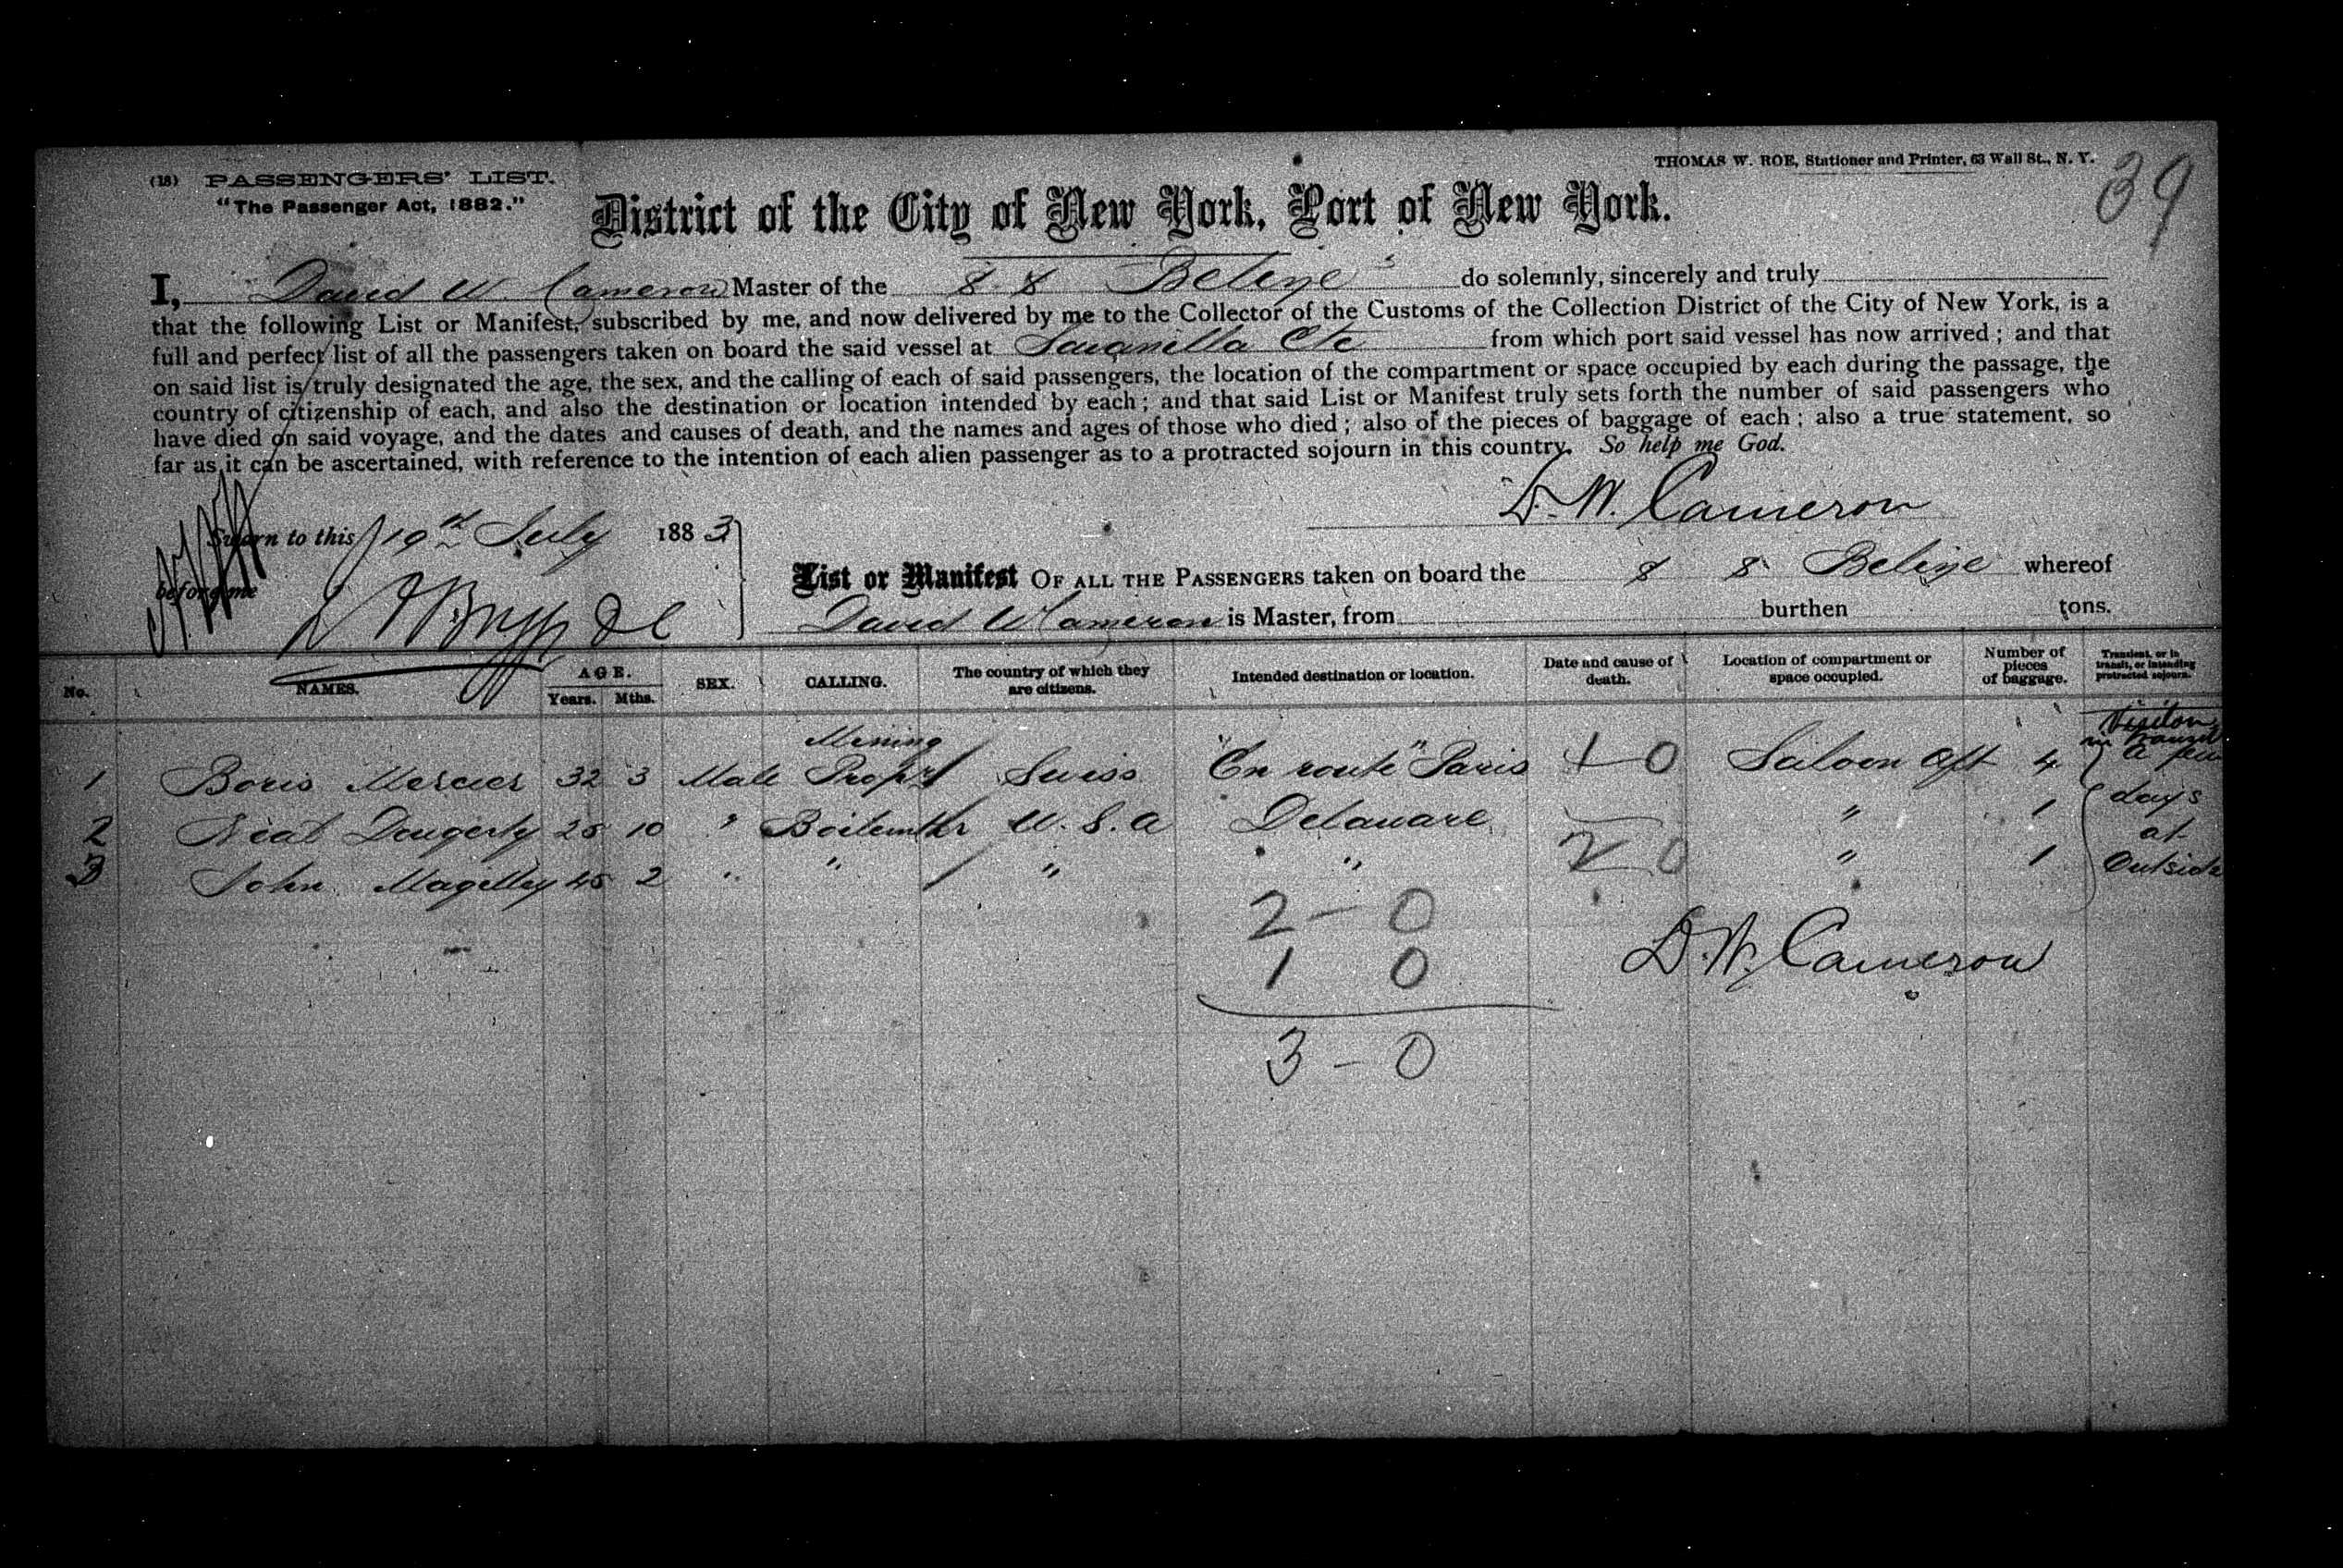 (18) PASSENGERS' LIST.
THOMAS W. ROE, Stationer and Printer, 63 Wall St., N. Y.
39
"The Passenger Act, 1882."
District of the City of New York, Port of New York.
I, David W. Cameron Master of the S. S. Belize do solemnly, sincerely and truly
that the following List or Manifest, subscribed by me, and now delivered by me to the Collector of the Customs of the Collection District of the City of New York, is a
full and perfect list of all the passengers taken on board the said vessel at Savanilla Etc from which port said vessel has now arrived; and that
on said list is truly designated the age, the sex, and the calling of each of said passengers, the location of the compartment or space occupied by each during the passage, the
country of citizenship of each, and also the destination or location intended by each; and that said List or Manifest truly sets forth the number of said passengers who
have died on said voyage, and the dates and causes of death, and the names and ages of those who died; also of the pieces of baggage of each; also a true statement, so
far as it can be ascertained, with reference to the intention of each alien passenger as to a protracted sojourn in this country. So help me God.
D. W. Cameron
Sworn to this 19th July 1883
before me
List or Manifest OF ALL THE PASSENGERS taken on board the S S Belize whereof
David W Cameron is Master, from burthen tons.
No. NAMES. AGE. Years. Mths. SEX. CALLING. The country of which they are citizens. Intended destination or location. Date and cause of death. Location of compartment or space occupied. Number of pieces of baggage. Transient, or in transit, or intending protracted sojourn.
1 Boris Mercier 32 3 Male Mining Propr Swiss "En route" Paris 1 0 Saloon Aft 4 in transit a few
2 Neal Dougerty 25 10 " Boilermkr U. S. A Delaware " 1 days
at
3 John Magelley 45 2 " " " " 2 0 " 1 Outside
2 - 0
1 0
D. W. Cameron
3 - 0